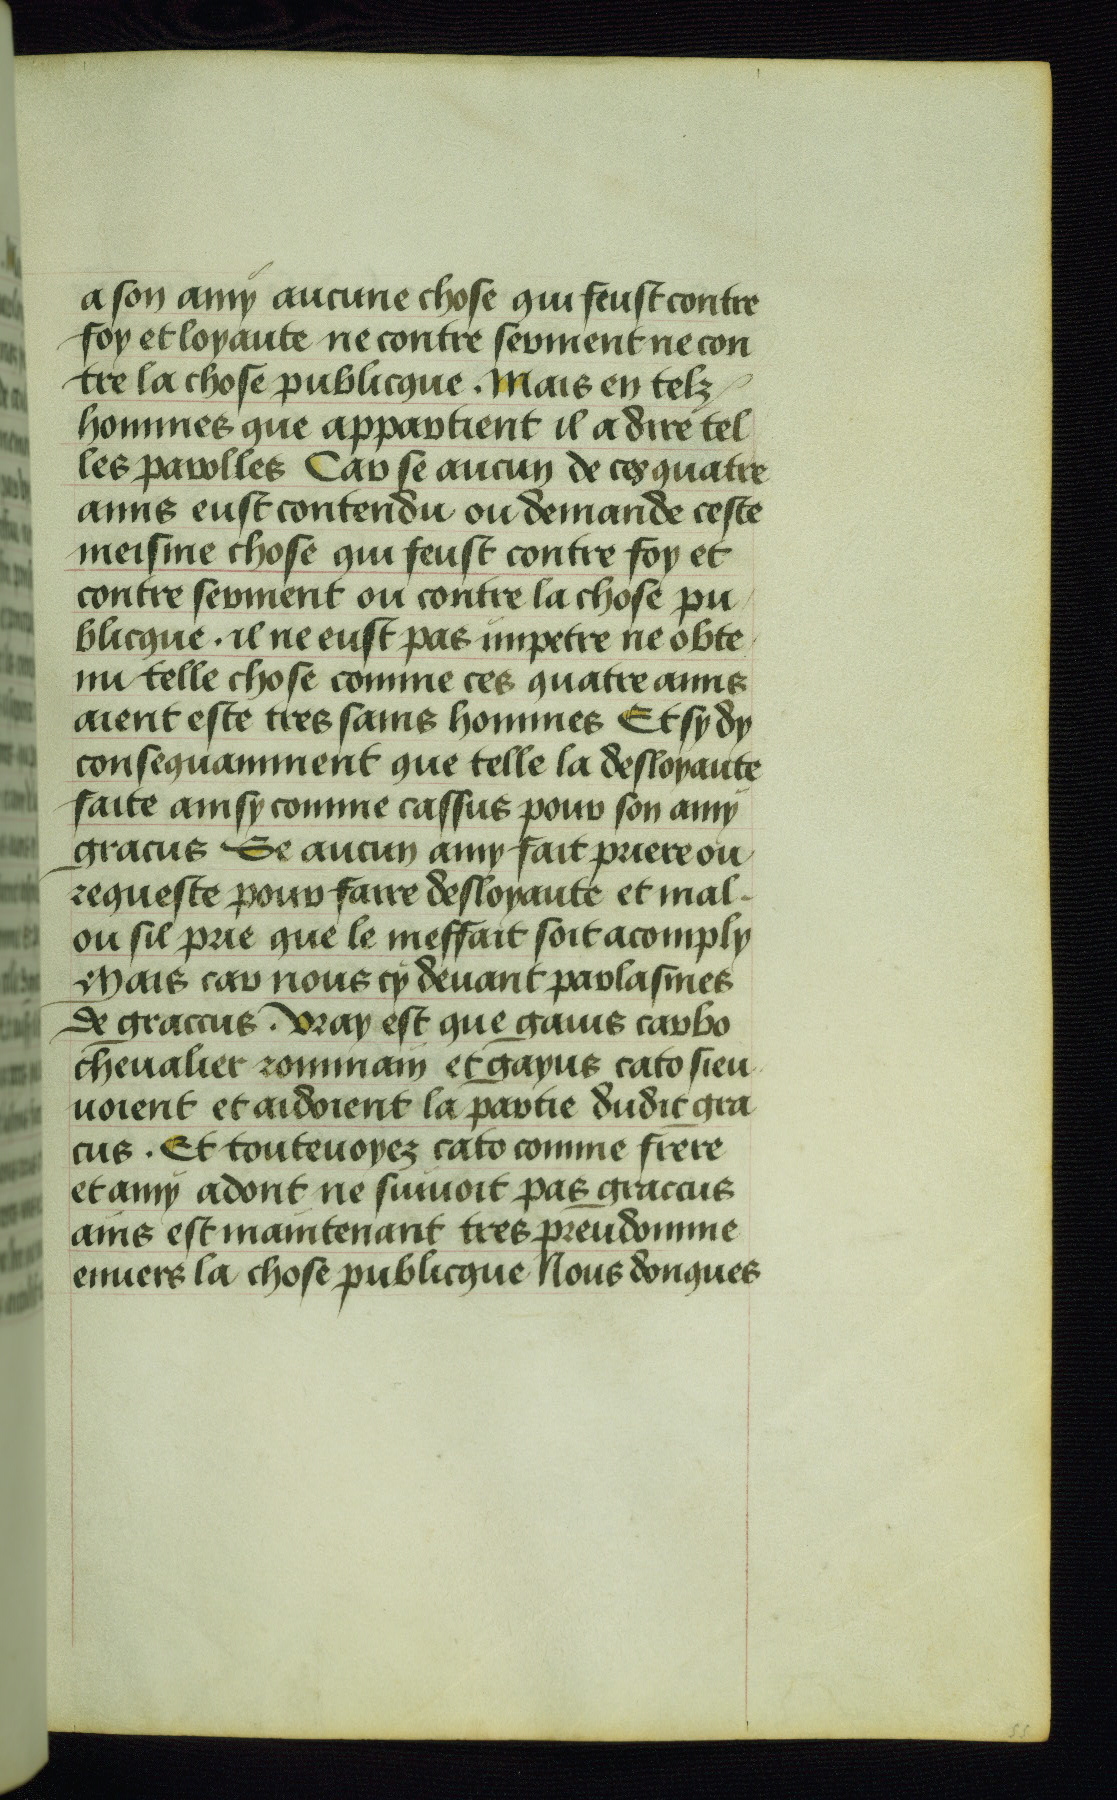 a son amy aucune chose qui feust contre
foy et loyaute ne contre serment ne con
tre la chose publicque . Mais en telz
hommes que appartient il a dire tel
les parolles Car se aucun de ces quatre
amis eust contendu ou demande ceste
meisme chose qui feust contre foy et
contre serment ou contre la chose pu
blicque . il ne eust pas impetre ne obte
nu telle chose comme ces quatre amis
aient este tres sains hommes Et sy dy
consequamment que telle la desloyaute
faite ainsy comme cassus pour son amy
gracus Se aucun amy fait priere ou
requeste pour faire desloyaute et mal -
ou sil prie que le meffait soit acomply
Mais car nous cy devant parlasmes
de graccus . Vray est que gaius carbo
chevalier rommain et gayus cato sieu
uoient et aidoient la partie dudit gra
cus . Et toutevoyez cato comme frere
et amy adont ne suiuoit pas graccus
ains est maintenant tres preudomme
enuers la chose publicque Nous donques
55